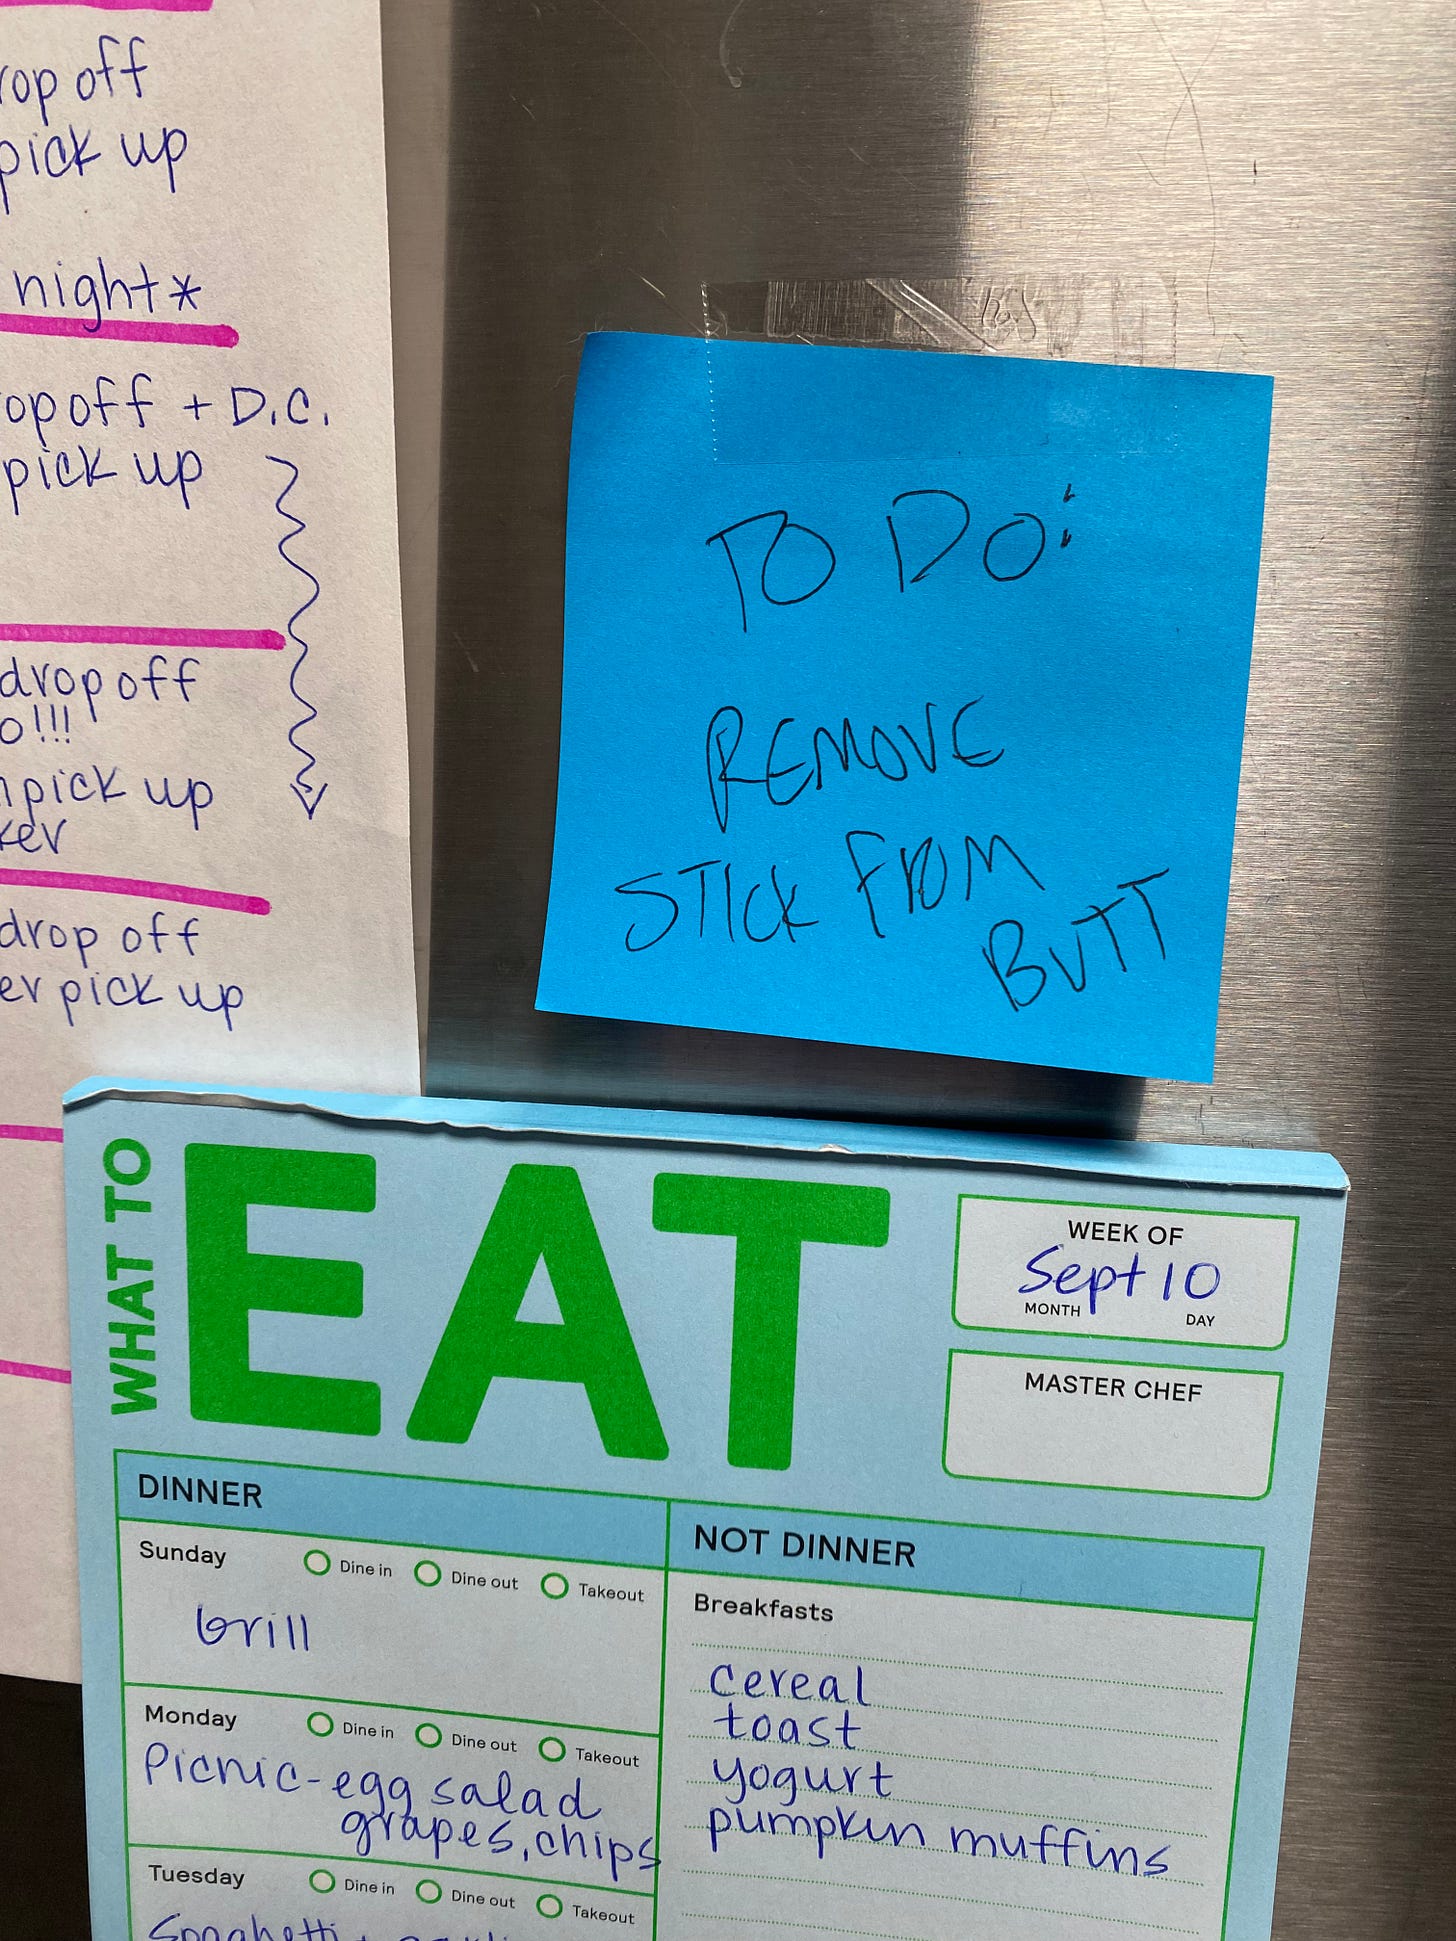 op off
pick up
night*
op off + D.C.
pick up
drop off
o!!!
pick up
drop off
er pick up
TO DO:
REMOVE
STICK FROM
BUTT
WHAT TO
EAT
WEEK OF
Sept 10
MONTH DAY
MASTER CHEF
DINNER
Sunday Dine in Dine out Takeout
Grill
Monday Dine in Dine out Takeout
Picnic-egg salad
grapes, chips
Tuesday Dine in Dine out Takeout
Spaghetti
NOT DINNER
Breakfasts
cereal
toast
yogurt
pumpkin muffins